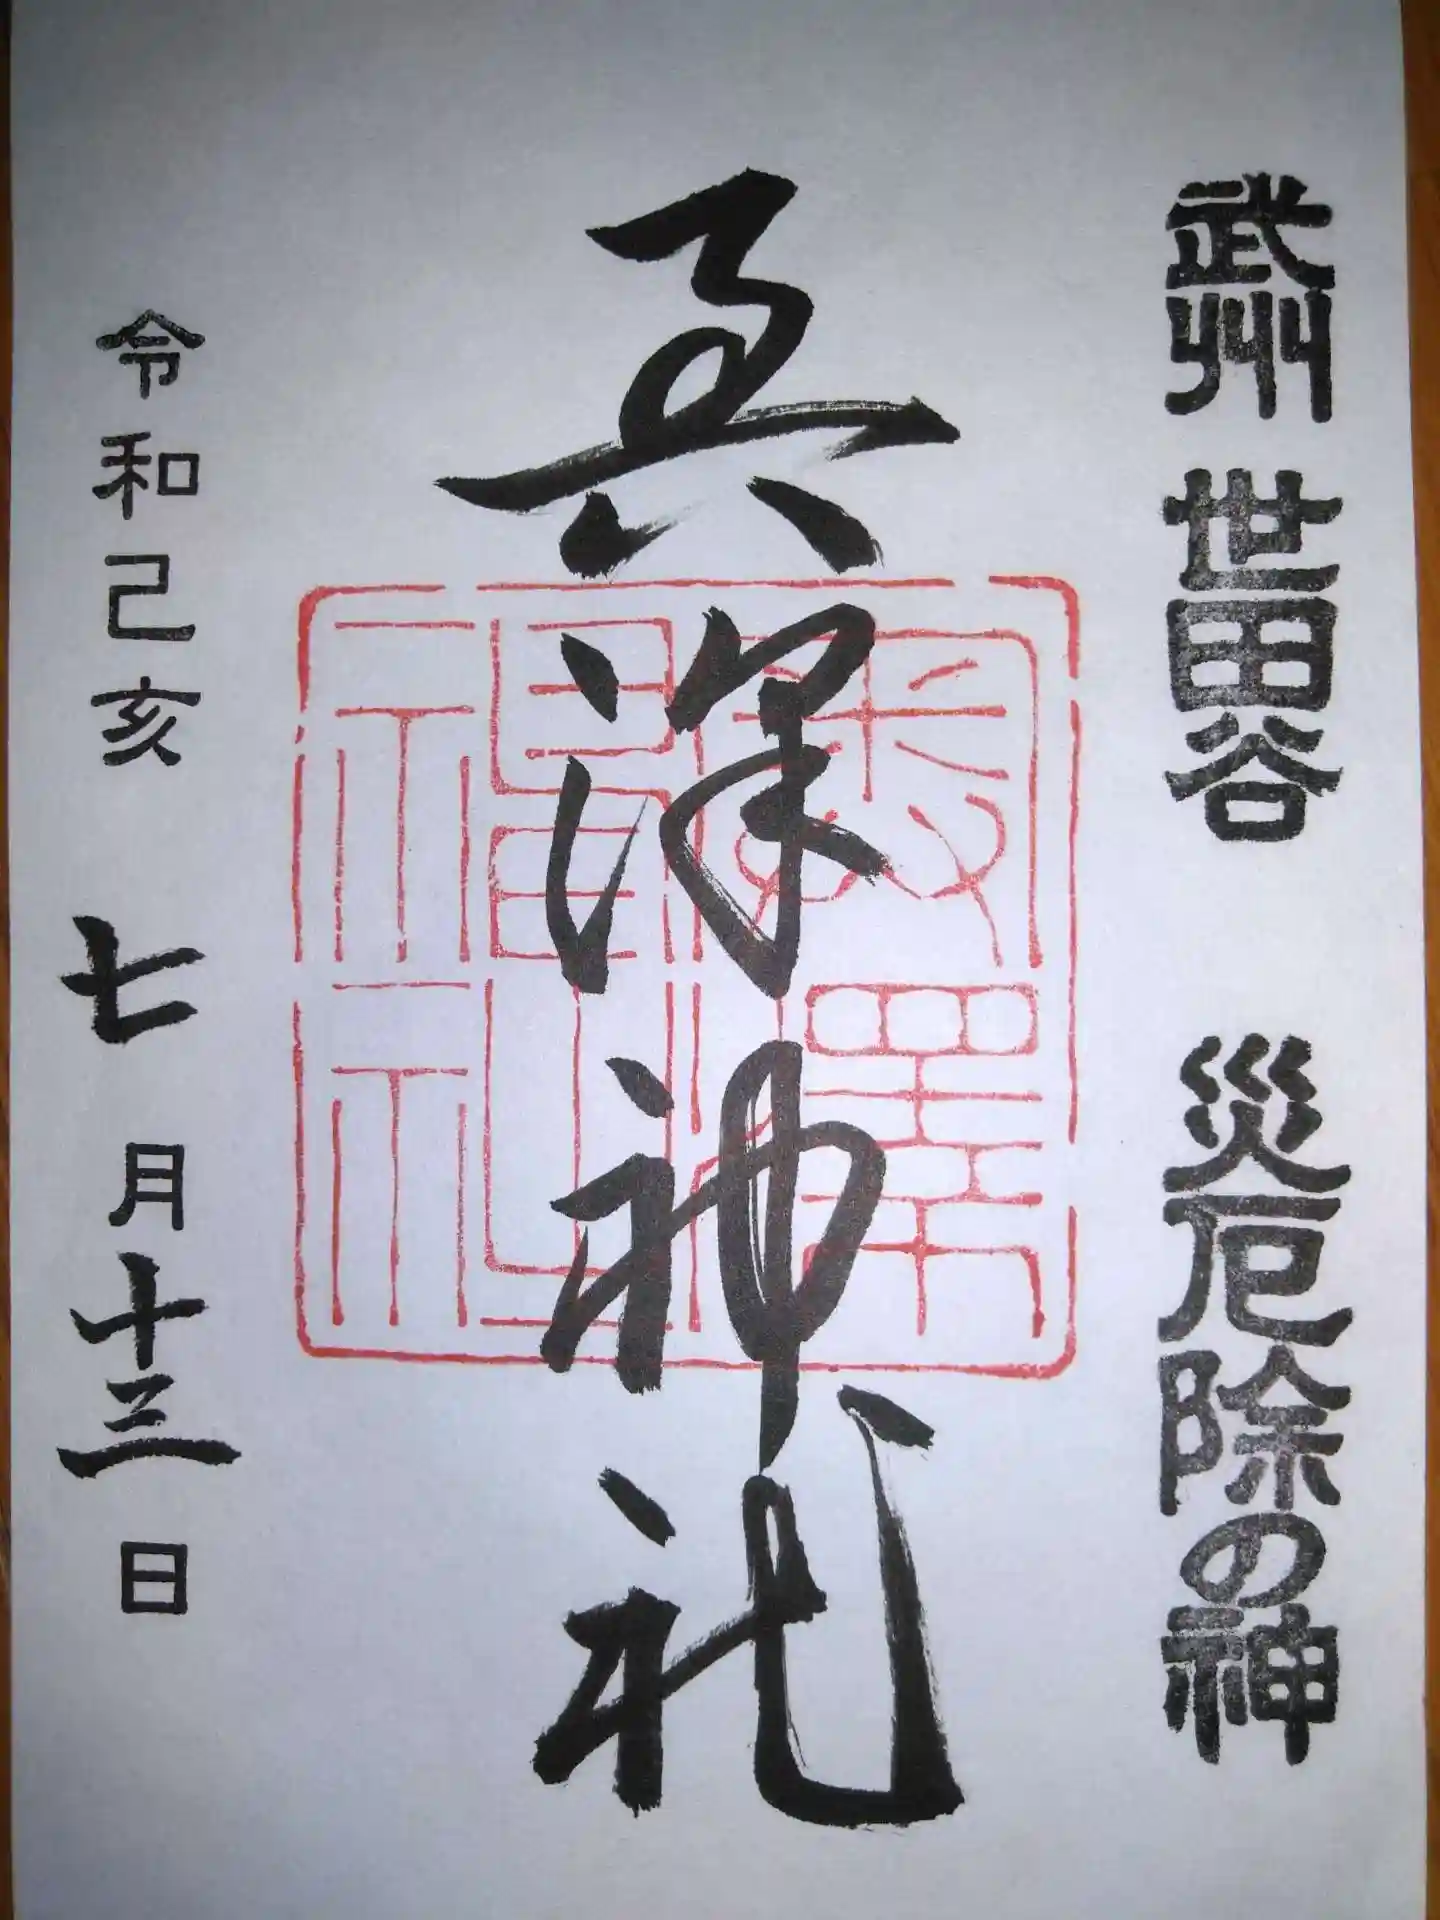 武州 世田谷 災厄除の神
奥澤神社
奥澤神社
令和己亥 七月十三日